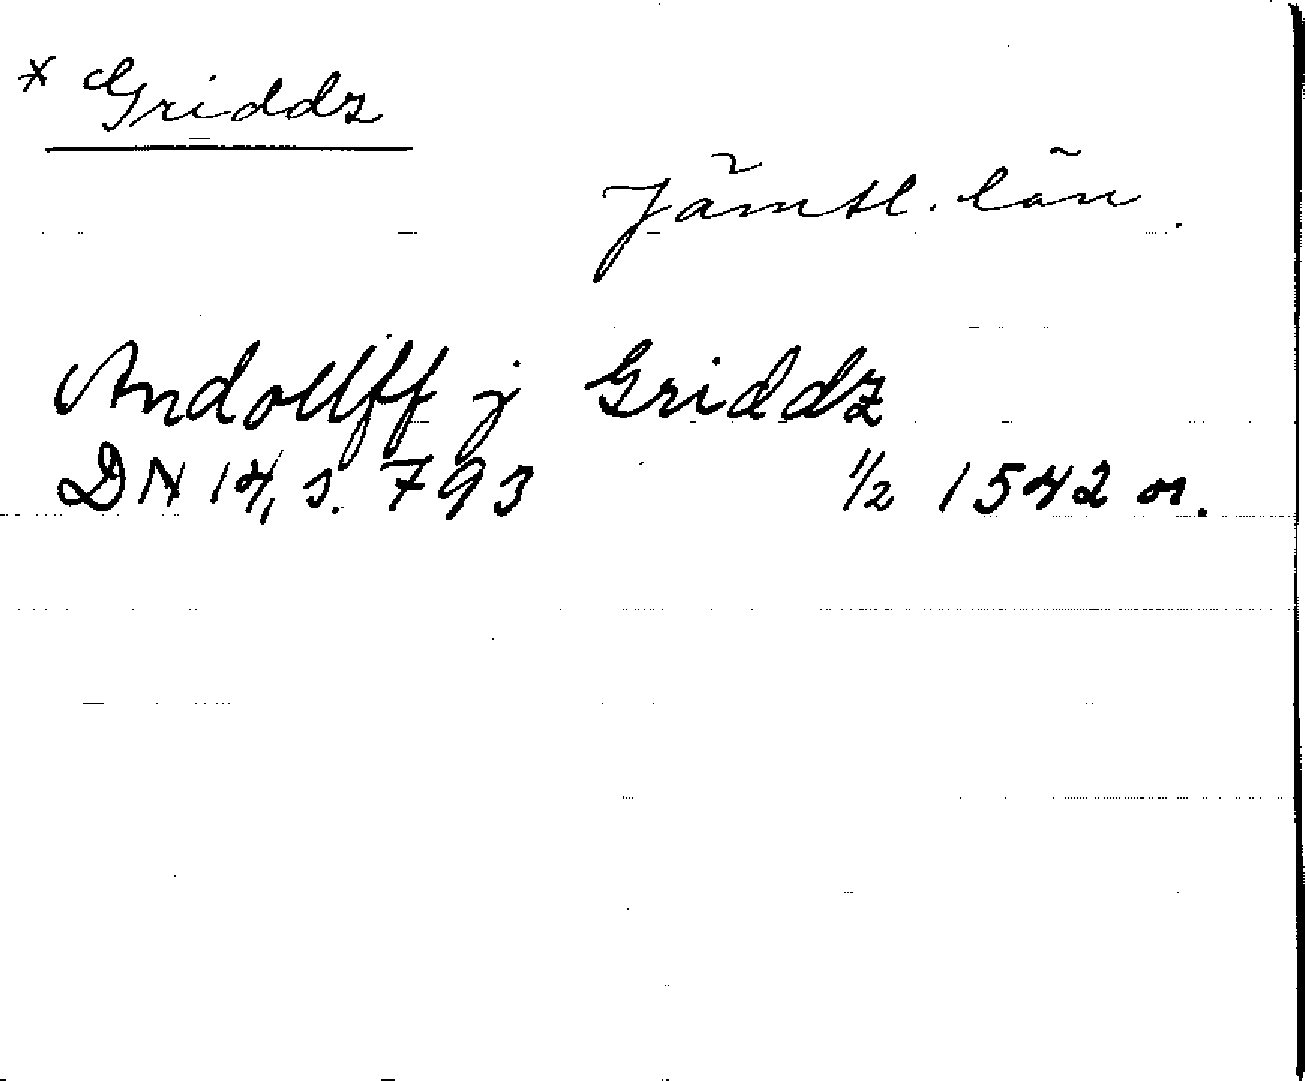 * Griddz
Jämtl. län.
Andollff j Griddz
DN 14, s. 793 1/2 1542 or.